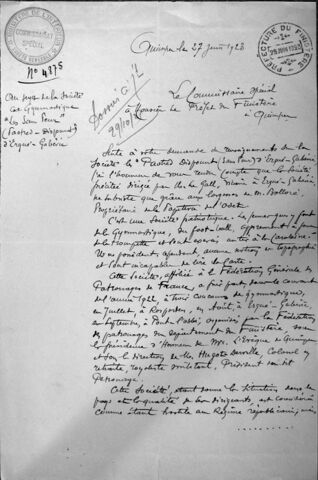 MINISTÈRE DE L'INTÉRIEUR
COMMISSARIAT SPÉCIAL
PRÉFECTURE DU FINISTÈRE
28 JUIN 1923
Quimper le 27 Juin 1923
No 4875
Le Commissaire Spécial
à Monsieur le Préfet du Finistère
à Quimper
Au sujet de la Société
de Gymnastique
"Les Sans Peur"
(Paotred-Dispount)
d'Ergué-Gabéric
Suite à votre demande de renseignements sur la
Société les "Paotred Dispount" (Sans Peur) d'Ergué-Gabéric
j'ai l'honneur de vous rendre compte que la Société
précitée dirigée par Mr Le Gall, Vicaire à Ergué-Gabéric
ne subsiste que grâce aux largesses de Mr Bolloré
Propriétaire de la Papeterie d'Odet.
C'est une Société patriotique. Les jeunes gens y font
de la Gymnastique, du foot-ball, apprennent à jouer
de la trompette et sont
Ils ne possèdent, cependant, aucune notion en topographie
et sont incapables de lire la carte.
Cette Société, affiliée à la Fédération Générale des
Patronages de France, a pris part, dans le courant
de l'année 1922, à trois concours de gymnastique,
en Juillet, à Rosporden, en Août, à Ergué-Gabéric
en Septembre, à Pont-l'Abbé, organisés par la Fédération
des patronages du Département du Finistère, sous
la présidence d'Honneur de Mgr. l'Evêque de Quimper
et sous la direction de Mr Hugot-Derville, Colonel en
retraite, royaliste militant, Président du dit
Patronage.
Cette Société, étant donné la situation dans le
pays et la qualité de ses dirigeants, est considérée
comme étant hostile au Régime républicain, mais